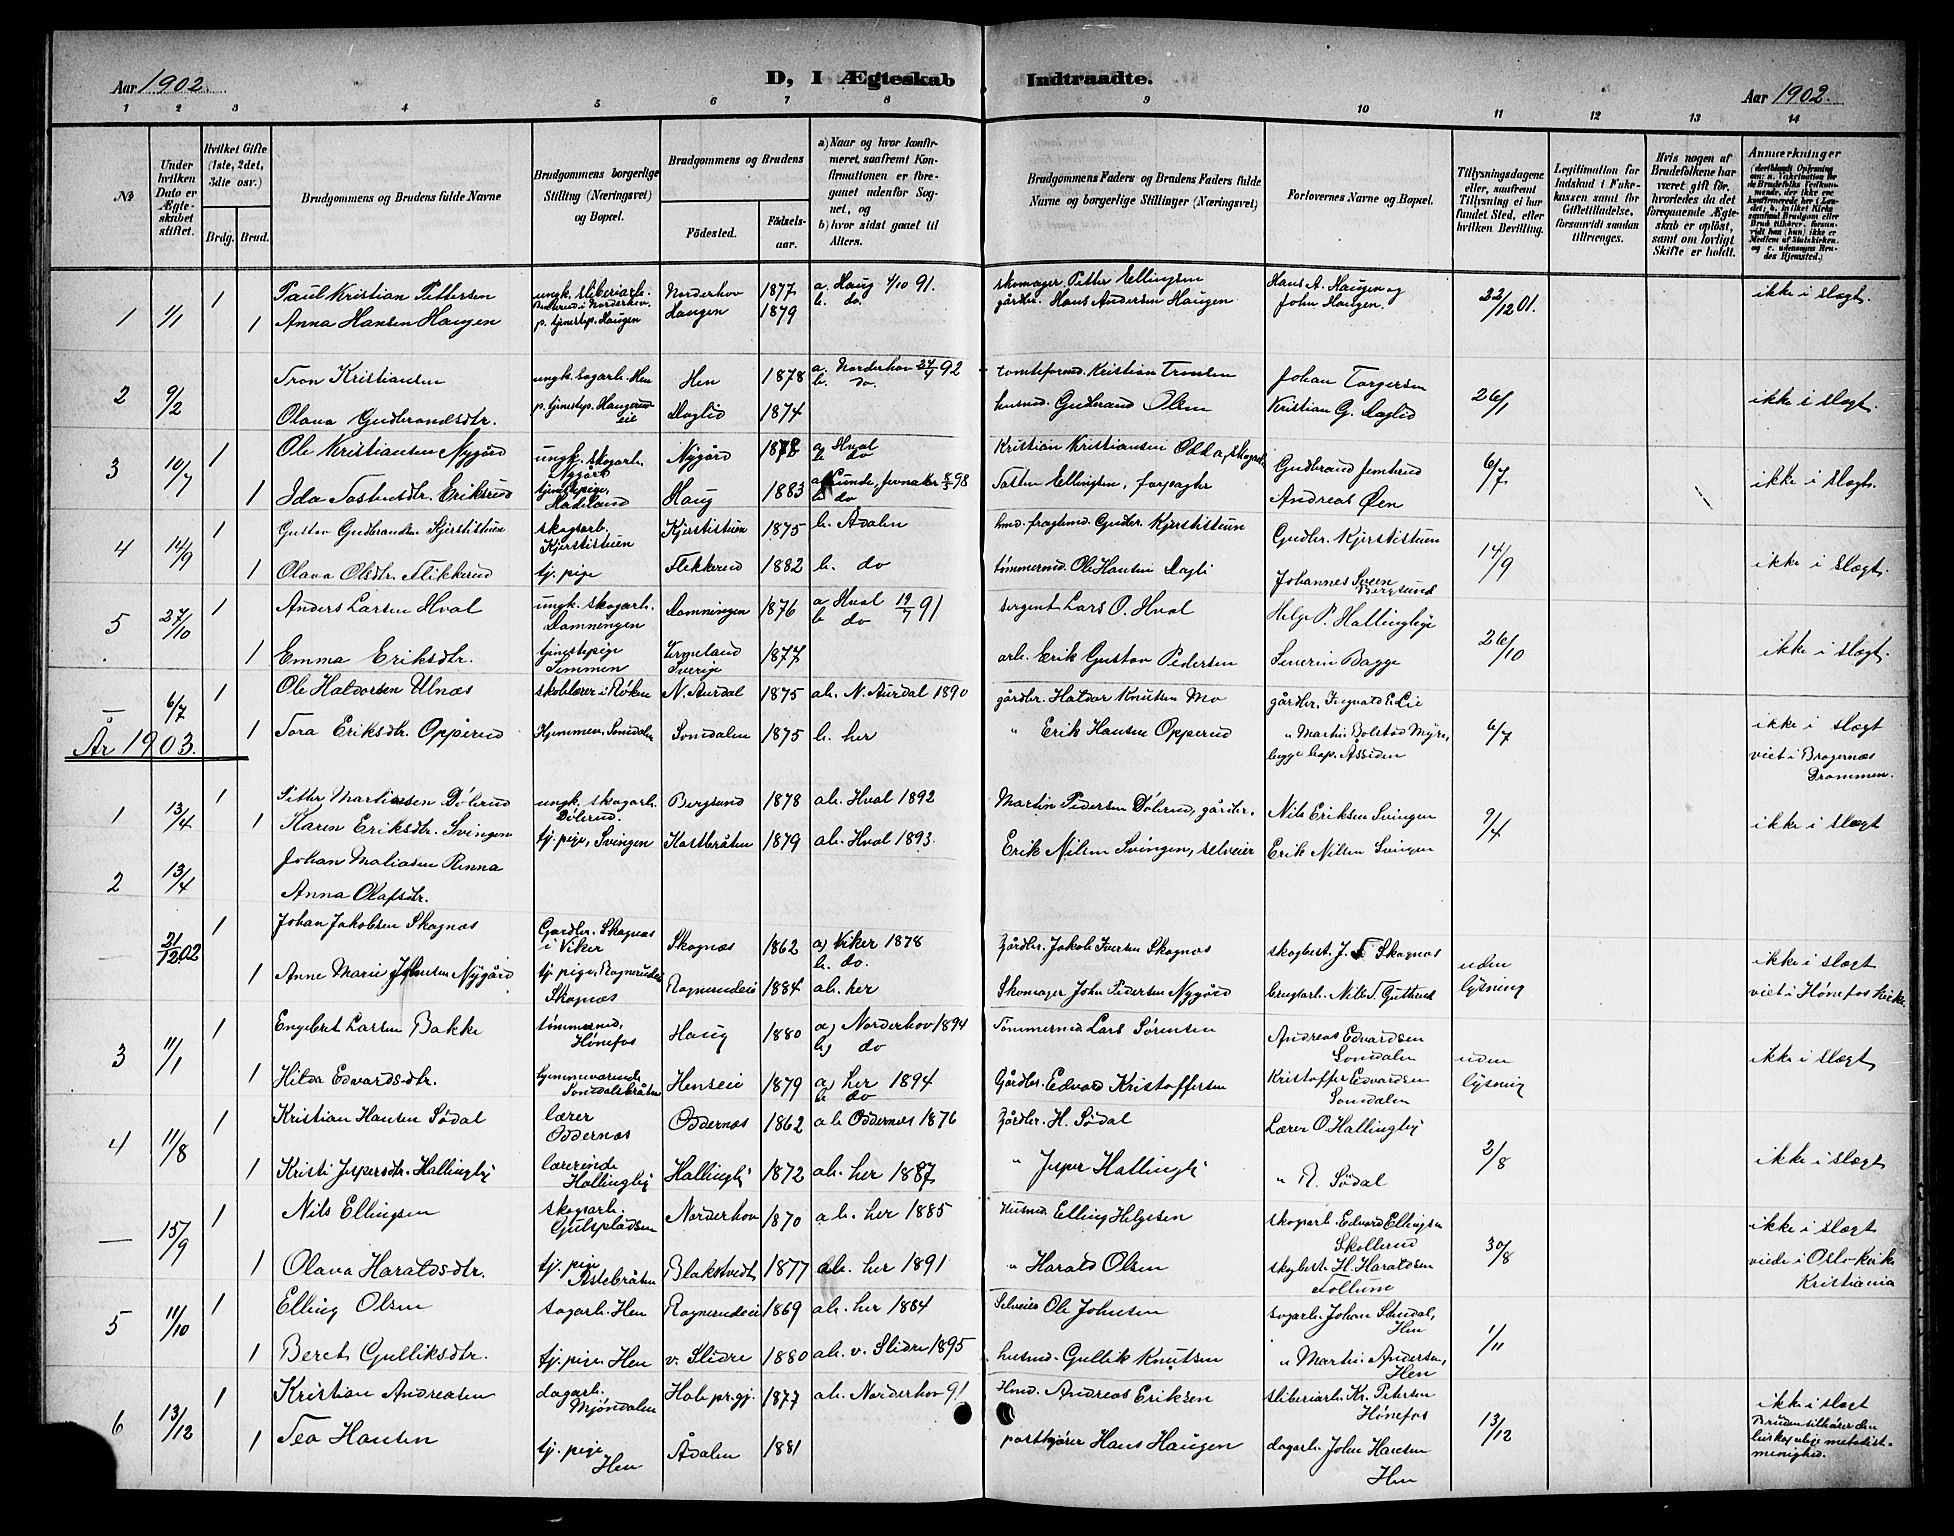 Aar 1902.
D, I Ægteskab
Indtraadte.
Aar 1902.
1 2 3 4 5 6 7 8 9 10 11 12 13 14
№
Under hvilken Dato er Ægteskabet stiftet.
Hvilket Gifte (1ste, 2det, 3die osv.)
Brdg. Brud.
Brudgommens og Brudens fulde Navne
Brudgommens borgerlige Stilling (Næringsvei) og Bopæl.
Brudgommens og Brudens
Fødested.
Fødselsaar.
a) Naar og hvor konfirmeret, saafremt Konfirmationen er foregaaet udenfor Sognet, og
b) hvor sidst gaaet til Alters.
Brudgommens Faders og Brudens Faders fulde Navne og borgerlige Stillinger (Næringsvei)
Forlovernes Navne og Bopæl.
Tillysningsdagene eller, saafremt Tillysning ei har fundet Sted, efter hvilken Bevilling.
Legitimation for Indskud i Fakkassen samt for Giftetilladelse, forsaavidt saadan tiltrænges.
Hvis nogen af Brudefolkene har været gift før, hvorledes da det foregaaende Ægteskab er opløst, samt om lovligt Skifte er holdt.
Anmærkninger
1 1/1 1 Paul Kristian Pettersen ungk. sliberiarb. Norderhov 1877 a. Haug 4/10 91. skomager Petter Ellingsen Hans A. Haugen og 22/12 01. ikke i slægt.
1 Anna Hansen Haugen p. tjenstep. Haugen Haugen 1879 b. do. gårdbr. Hans Andersen Haugen John Haugen.
2 9/2 Tron Kristiansen ungk. sagarb. Hen Hen 1878 a. Norderhov 24/4 92 tomteformd. Kristian Tronsen Johan Torgersen 26/1 ikke i slægt.
Olava Gudbrandsdtr. p. tjenstep. Haugerudeie Haglid 1874 b. do. husmd. Gudbrand Olsen Kristian G. Haglid
3 10/7 1 Ole Kristiansen Nygård ungk. skogarb. Nygård Nygård 1878 a Hval b do Kristian Kristiansen Gudbrand Jemterud 6/7 ikke i slægt.
1 Ida Tostensdtr. Eriksrud tjenstepige, Hadeland Haug 1883 a Lunde, Jevnaker 98 b do Tosten Ellingsen, forpagter Andreas Øen
4 14/9 1 Gustav Gudbrandsen Kjerstistuen skogarb. Kjerstistuen Kjerstistuen 1875 b. Ådalen Gudbr. Kjerstistuen Gudbr. Kjerstistuen 14/9 ikke i slægt.
1 Olava Olsdtr. Flikkerud tj. pige Flekkerud 1882 b. do tømmermd. Ole Hansen Johannes Sveen Bergsund
5 27/10 Anders Larsen Hval ungk. skogarb. Damningen Damningen 1876 a Hval 19/7 91 b do sergent Lars O. Hval Helge P. Hallingbye 26/10 ikke i slægt.
1 Emma Eriksdtr. tjenstepige Semmen Vermland Sverige 1877 arb. Erik Gustav Pedersen Severin Bagge
— 6/7 1 Ole Halvorsen Ulnæs skolelærer i Røken N. Aurdal 1875 ab. N. Aurdal 1890 gårdbr. Haldor Knutsen Mo gårdbr. Ingvald E. Lie 6/7 ikke i slægt
1 Tora Eriksdtr. Opperud Hjemmev. Somdalen Somdalen 1875 b. her " Erik Hansen Opperud " Martin Bolstad Myre, begge bop. Åssiden viet i Bragernæs Drammen.
År 1903.
1 13/4 1 Petter Martinsen Dølerud ungk. skogarb. Dølerud. Bergsund 1878 ab. Hval 1892 Martin Pedersen Dølerud, gårdbr. Nils Eriksen Svingen 9/4 ikke i slægt
1 Karen Eriksdtr. Svingen tj. pige, Svingen Kastbråten 1879 ab. Hval 1893. Erik Nilsen Svingen, selveier Erik Nilsen Svingen
2 13/4 Johan Maliasen Rinna
Anna Olafsdtr.
— 21/12 02 1 Johan Jakobsen Skagnæs Gardbr. Skagnæs i Viker Skagnæs 1862 a) Viker 1878 b. do. Gårdbr. Jakob Iversen Skagnæs skogbest. J. Skagnæs uden lysning ikke i slægt
1 Anne Marie Johnsen Nygård tj. pige, Ragnerudeie Skagnæs Ragnerudeie 1884 ab. her Skomager John Pedersen Nygård brugsarb. Nils T. Gutterud viet i Hønefos kirke.
3 11/1 1 Engebret Larsen Bakke tømmermd, Hønefos Haug 1880 a) Norderhov 1894 b) do Tømmermd Lars Sørensen Andreas Edvardsen Somdalen uden lysning ikke i slægt
1 Hilda Edvardsdtr. hjemmeværende, Somdalsbråten Henseie 1879 a) her 1894 b. do Gårdbr. Edvard Kristoffersen Kristoffer Edvardsen Somdalen
4 11/8 1 Kristian Hansen Sødal lærer Oddernæs Oddernæs 1862 ab Oddernæs 1876 Gårdbr. H. Sødal Lærer O. Hallingby 2/8 ikke i slægt
1 Kristi Jespersdtr. Hallingby lærerinde Hallingby Hallingby 1872 ab. her 1887 " Jesper Hallingby " R. Sødal
— 15/9 1 Nils Ellingsen skogarb. Gulspladsen Norderhov 1870 ab. her 1885 Husmd Elling Helgesen skogarb. Edvard Ellingsen Skollerud 30/8 ikke i slægt
1 Olava Haraldsdtr. tj. pige Astebråten Blakstvedt 1877 ab. her 1891 " Harald Olsen skogbest. H. Haraldsen Follum viede i Oslo-kirke Kristiania
5 11/10 1 Elling Olsen sagarb. Hen Ragnerudeie 1869 ab. her 1884 Selveier Ole Johnsen sagarb. Johan Hen 1/11
1 Beret Gulliksdtr. tj. pige Hen v. Slidre 1880 ab. v. Slidre 1895 husmd. Gullik Knutsen " Martin Andersen, Hen
6 13/12 1 Kristian Andreasen dagarb. Mjøndalen Hole pr.gj. 1877 ab. Norderhov 91 Hmd. Andreas Eriksen sliberiarb. Kr. Petersen Hønefos 13/12 ikke i slægt
1 Tea Hansen tj. pige Hen Ådalen 1881 postkjører Hans Haugen dagarb. John Hansen Hen Bruden tilhører den biskoppelige metodistmenighed.